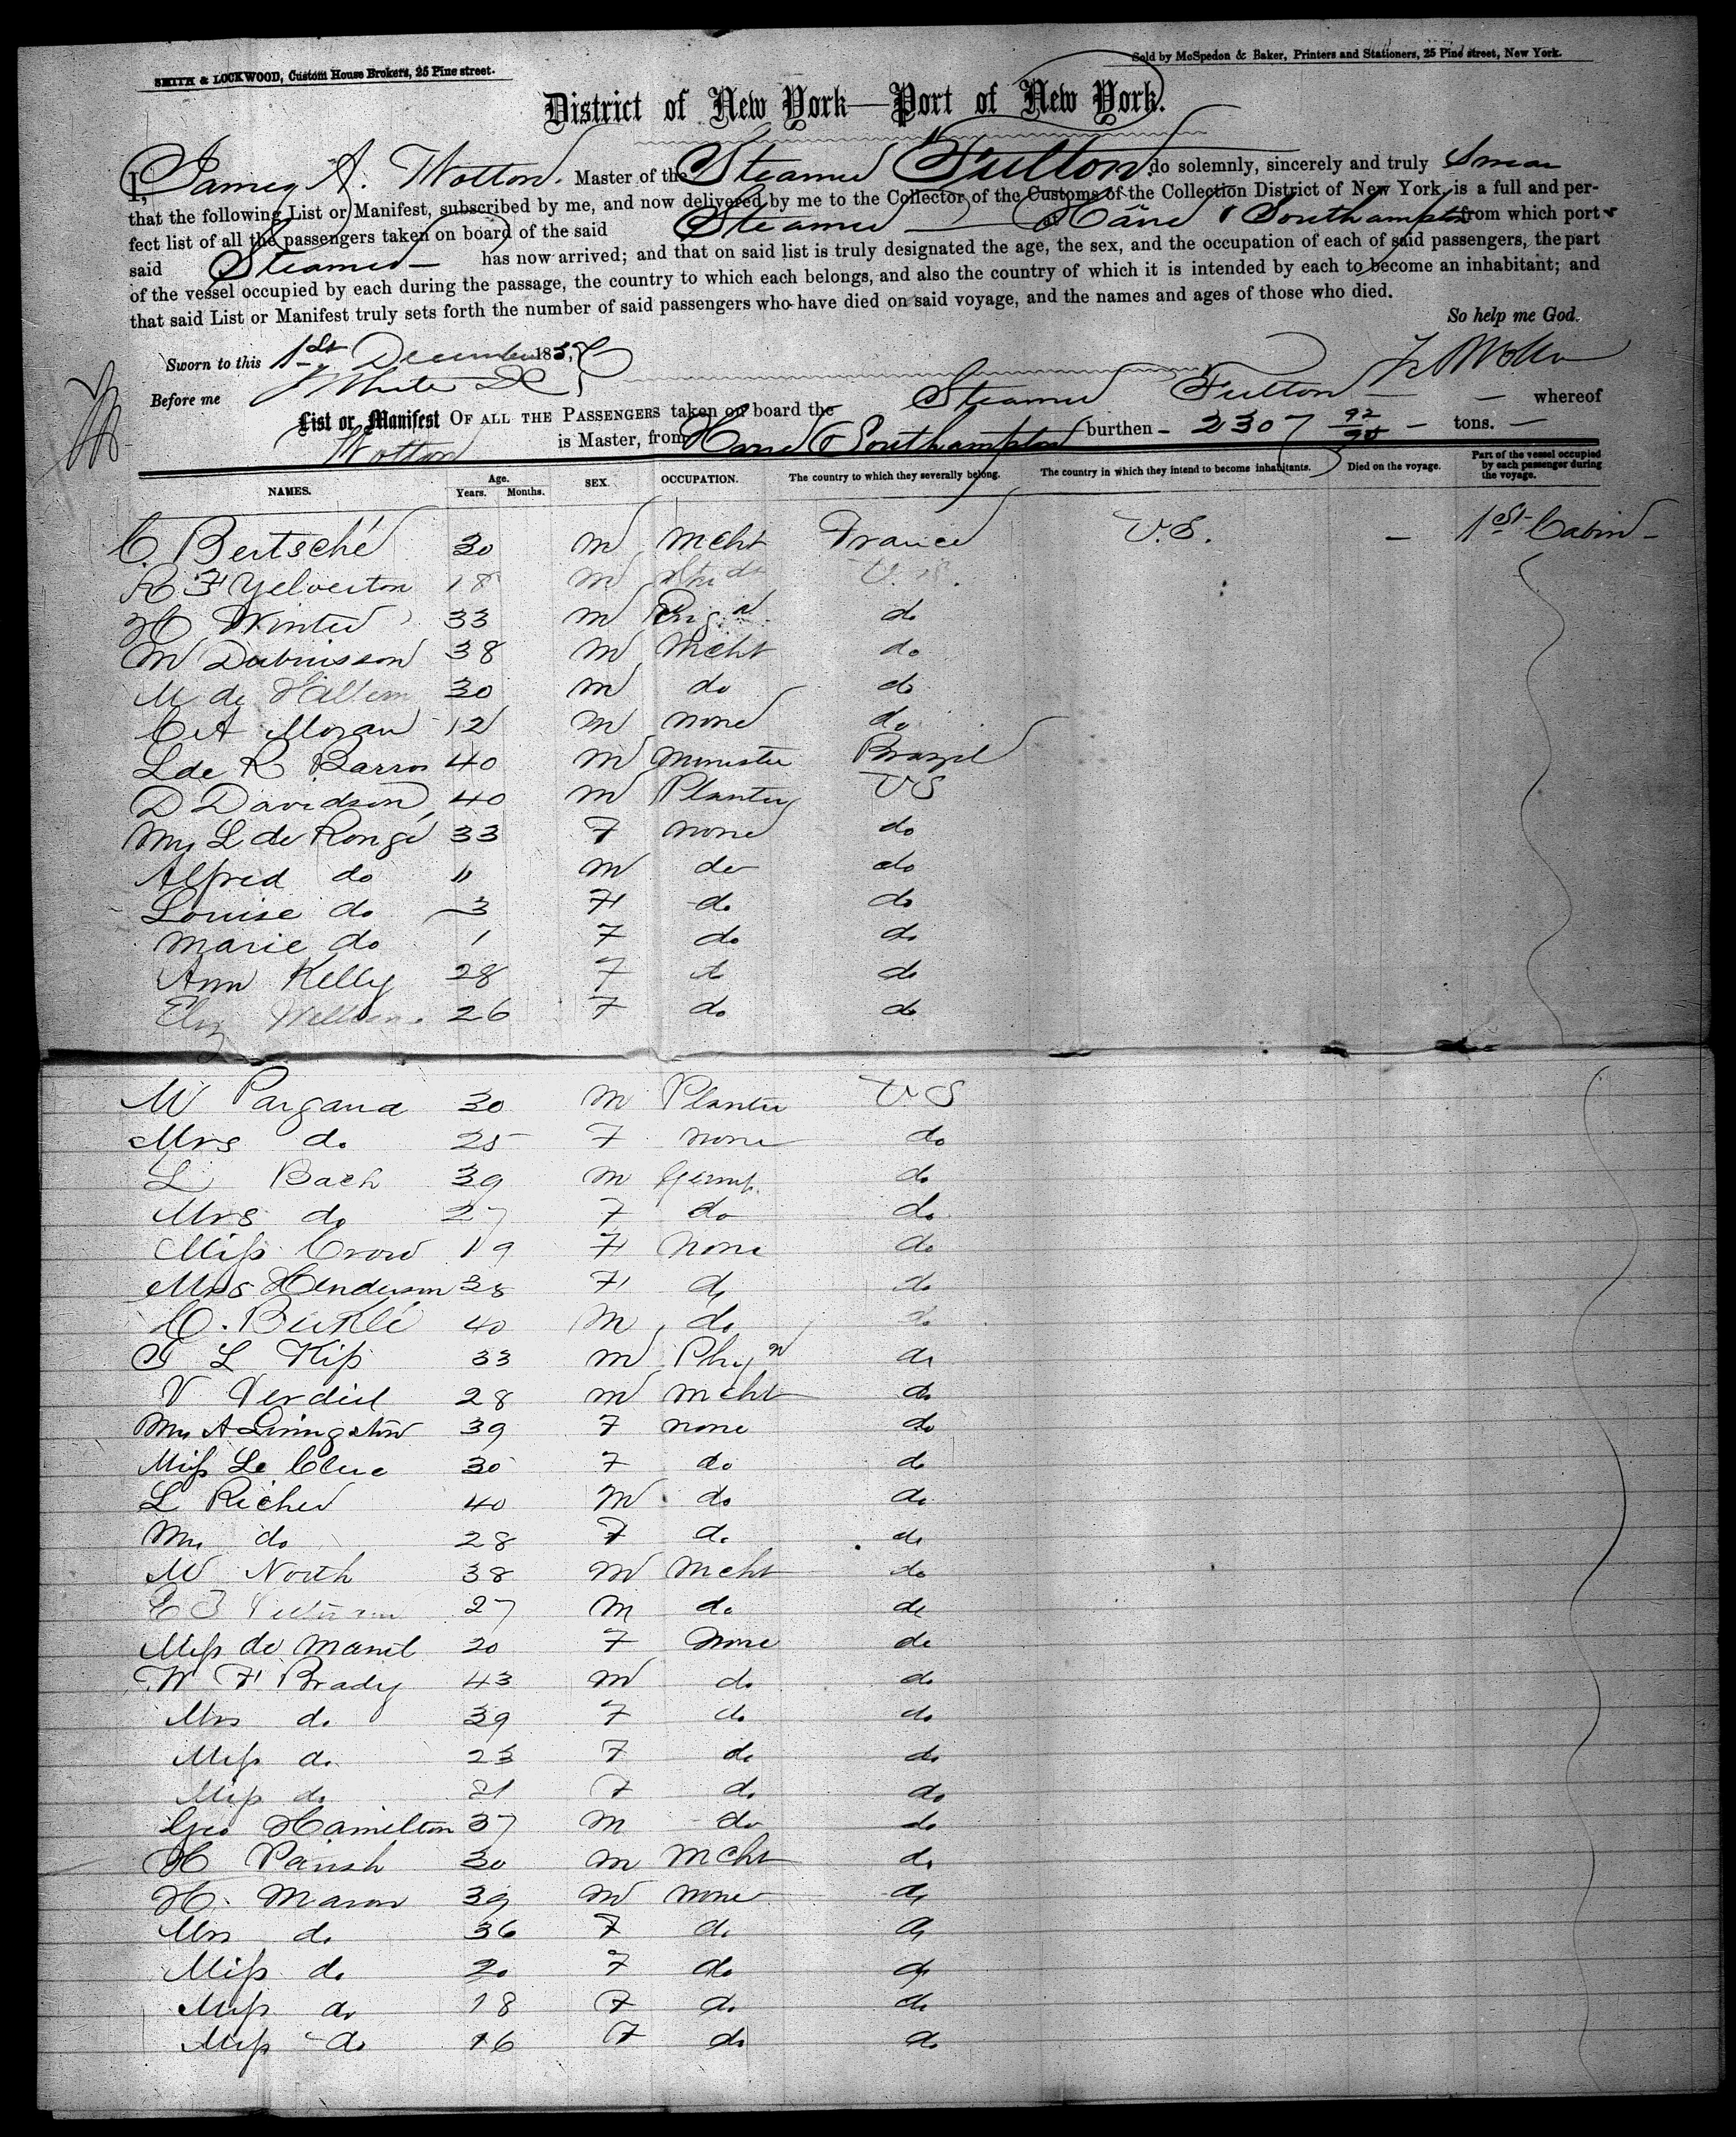 SMITH & LOCKWOOD, Custom House Brokers, 25 Pine street.
Sold by McSpedon & Baker, Printers and Stationers, 25 Pine street, New York.
District of New York—Port of New York.
I, James A. Wotton. Master of the Steamer Fulton do solemnly, sincerely and truly Swear
that the following List or Manifest, subscribed by me, and now delivered by me to the Collector of the Customs of the Collection District of New York, is a full and per-
fect list of all the passengers taken on board of the said Steamer — at Havre & Southampton from which port
said Steamer — has now arrived; and that on said list is truly designated the age, the sex, and the occupation of each of said passengers, the part
of the vessel occupied by each during the passage, the country to which each belongs, and also the country of which it is intended by each to become an inhabitant; and
that said List or Manifest truly sets forth the number of said passengers who have died on said voyage, and the names and ages of those who died.
So help me God.
Sworn to this 1st December 185
Before me White
List or Manifest OF ALL THE PASSENGERS taken on board the Steamer Fulton — whereof
Wotton is Master, from Havre & Southampton burthen - 2307 92/95 - tons. —
NAMES. Age. Years. Months. SEX. OCCUPATION. The country to which they severally belong. The country in which they intend to become inhabitants. Died on the voyage. Part of the vessel occupied by each passenger during the voyage.
C. Bertsché 30 m mcht France U.S. — 1st Cabin -
R F Yelverton 18 m Stud U.S.
H Winter 33 m do
M Dubuisson 38 m Mcht do
M de 30 m do do
C A Moran 12 m none do
L de R Barros 40 m minister Brazil
D Davidson 40 m Planter US
Mrs L de Rongé 33 F none do
Alfred do 11 m do do
Louise do 3 F do do
Marie do 1 F do do
Ann Kelly 28 F do do
Eliz 26 F do do
M Pargana 30 m Planter U.S
Mrs do 25 F none do
L Bach 39 m do
Mrs do 27 F do do
Miss Crow 19 F none do
Mrs Henderson 38 F do do
C. 40 m do do
G L Kip 33 m Phyn do
V Verdiel 28 m mcht do
Mrs A Livingston 39 F none do
Miss Le Clerc 30 F do do
L Richer 40 m do do
Mrs do 28 F do do
M North 38 m mcht do
E 27 m do do
Miss de Manil 20 F none do
W F Brady 43 m do do
Mrs do 39 F do do
Miss do 23 F do do
Miss do 21 F do do
Geo Hamilton 37 m do do
H Parish 30 m mcht do
H. Mason 39 m none do
Mrs do 36 F do do
Miss do 20 F do do
Miss do 18 F do do
Miss do 16 F do do